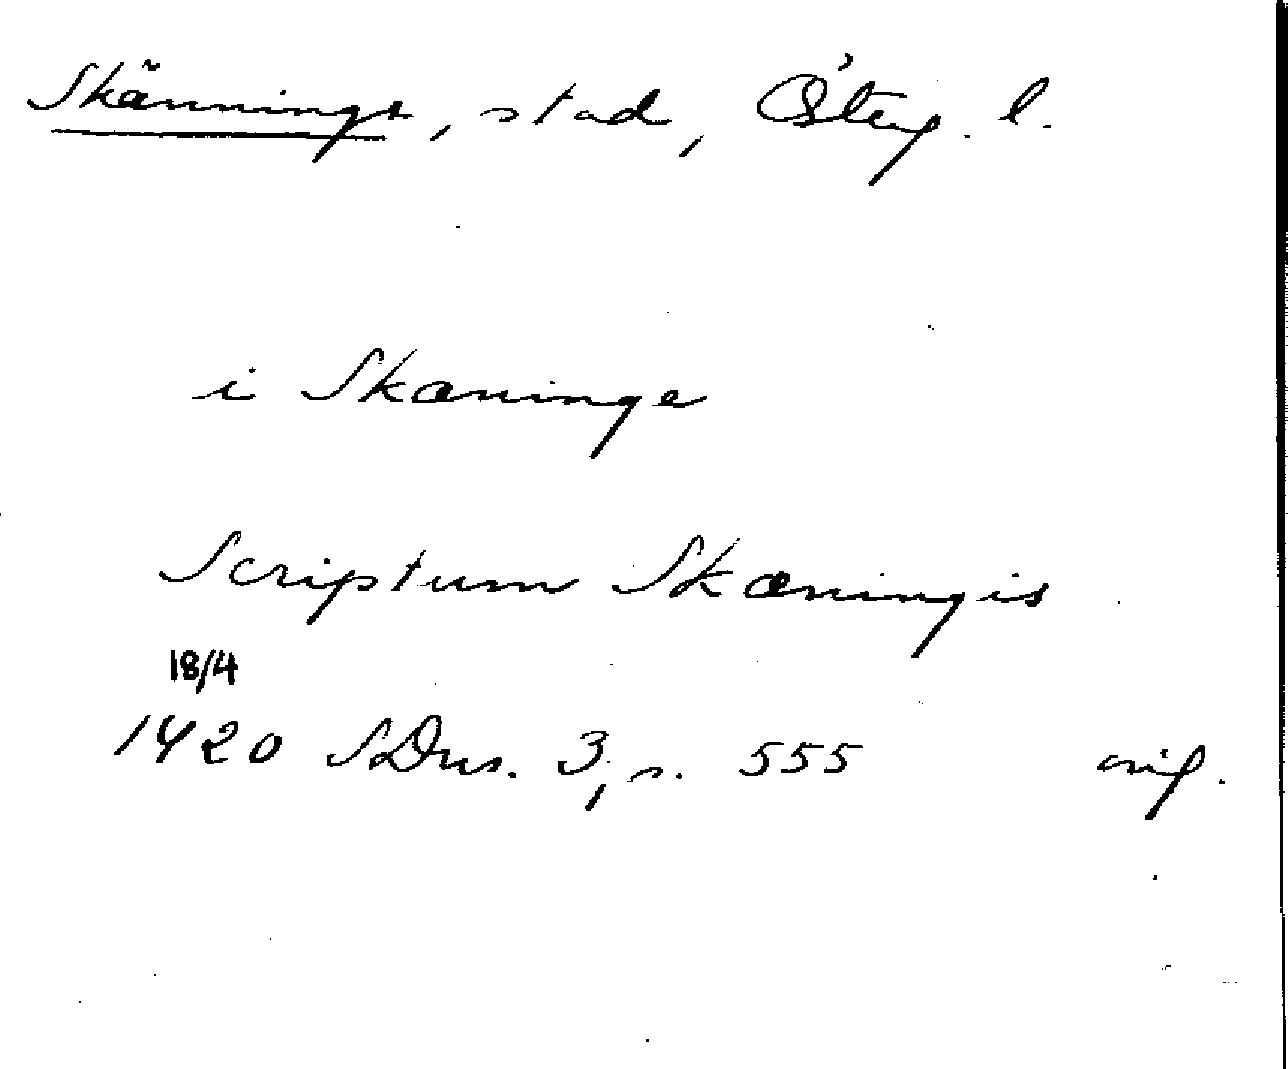 Skänninge, stad, Österg. l.
i Skæninge
Scriptum Skæningis
18/4
1420 SDns. 3, s. 555 orig.